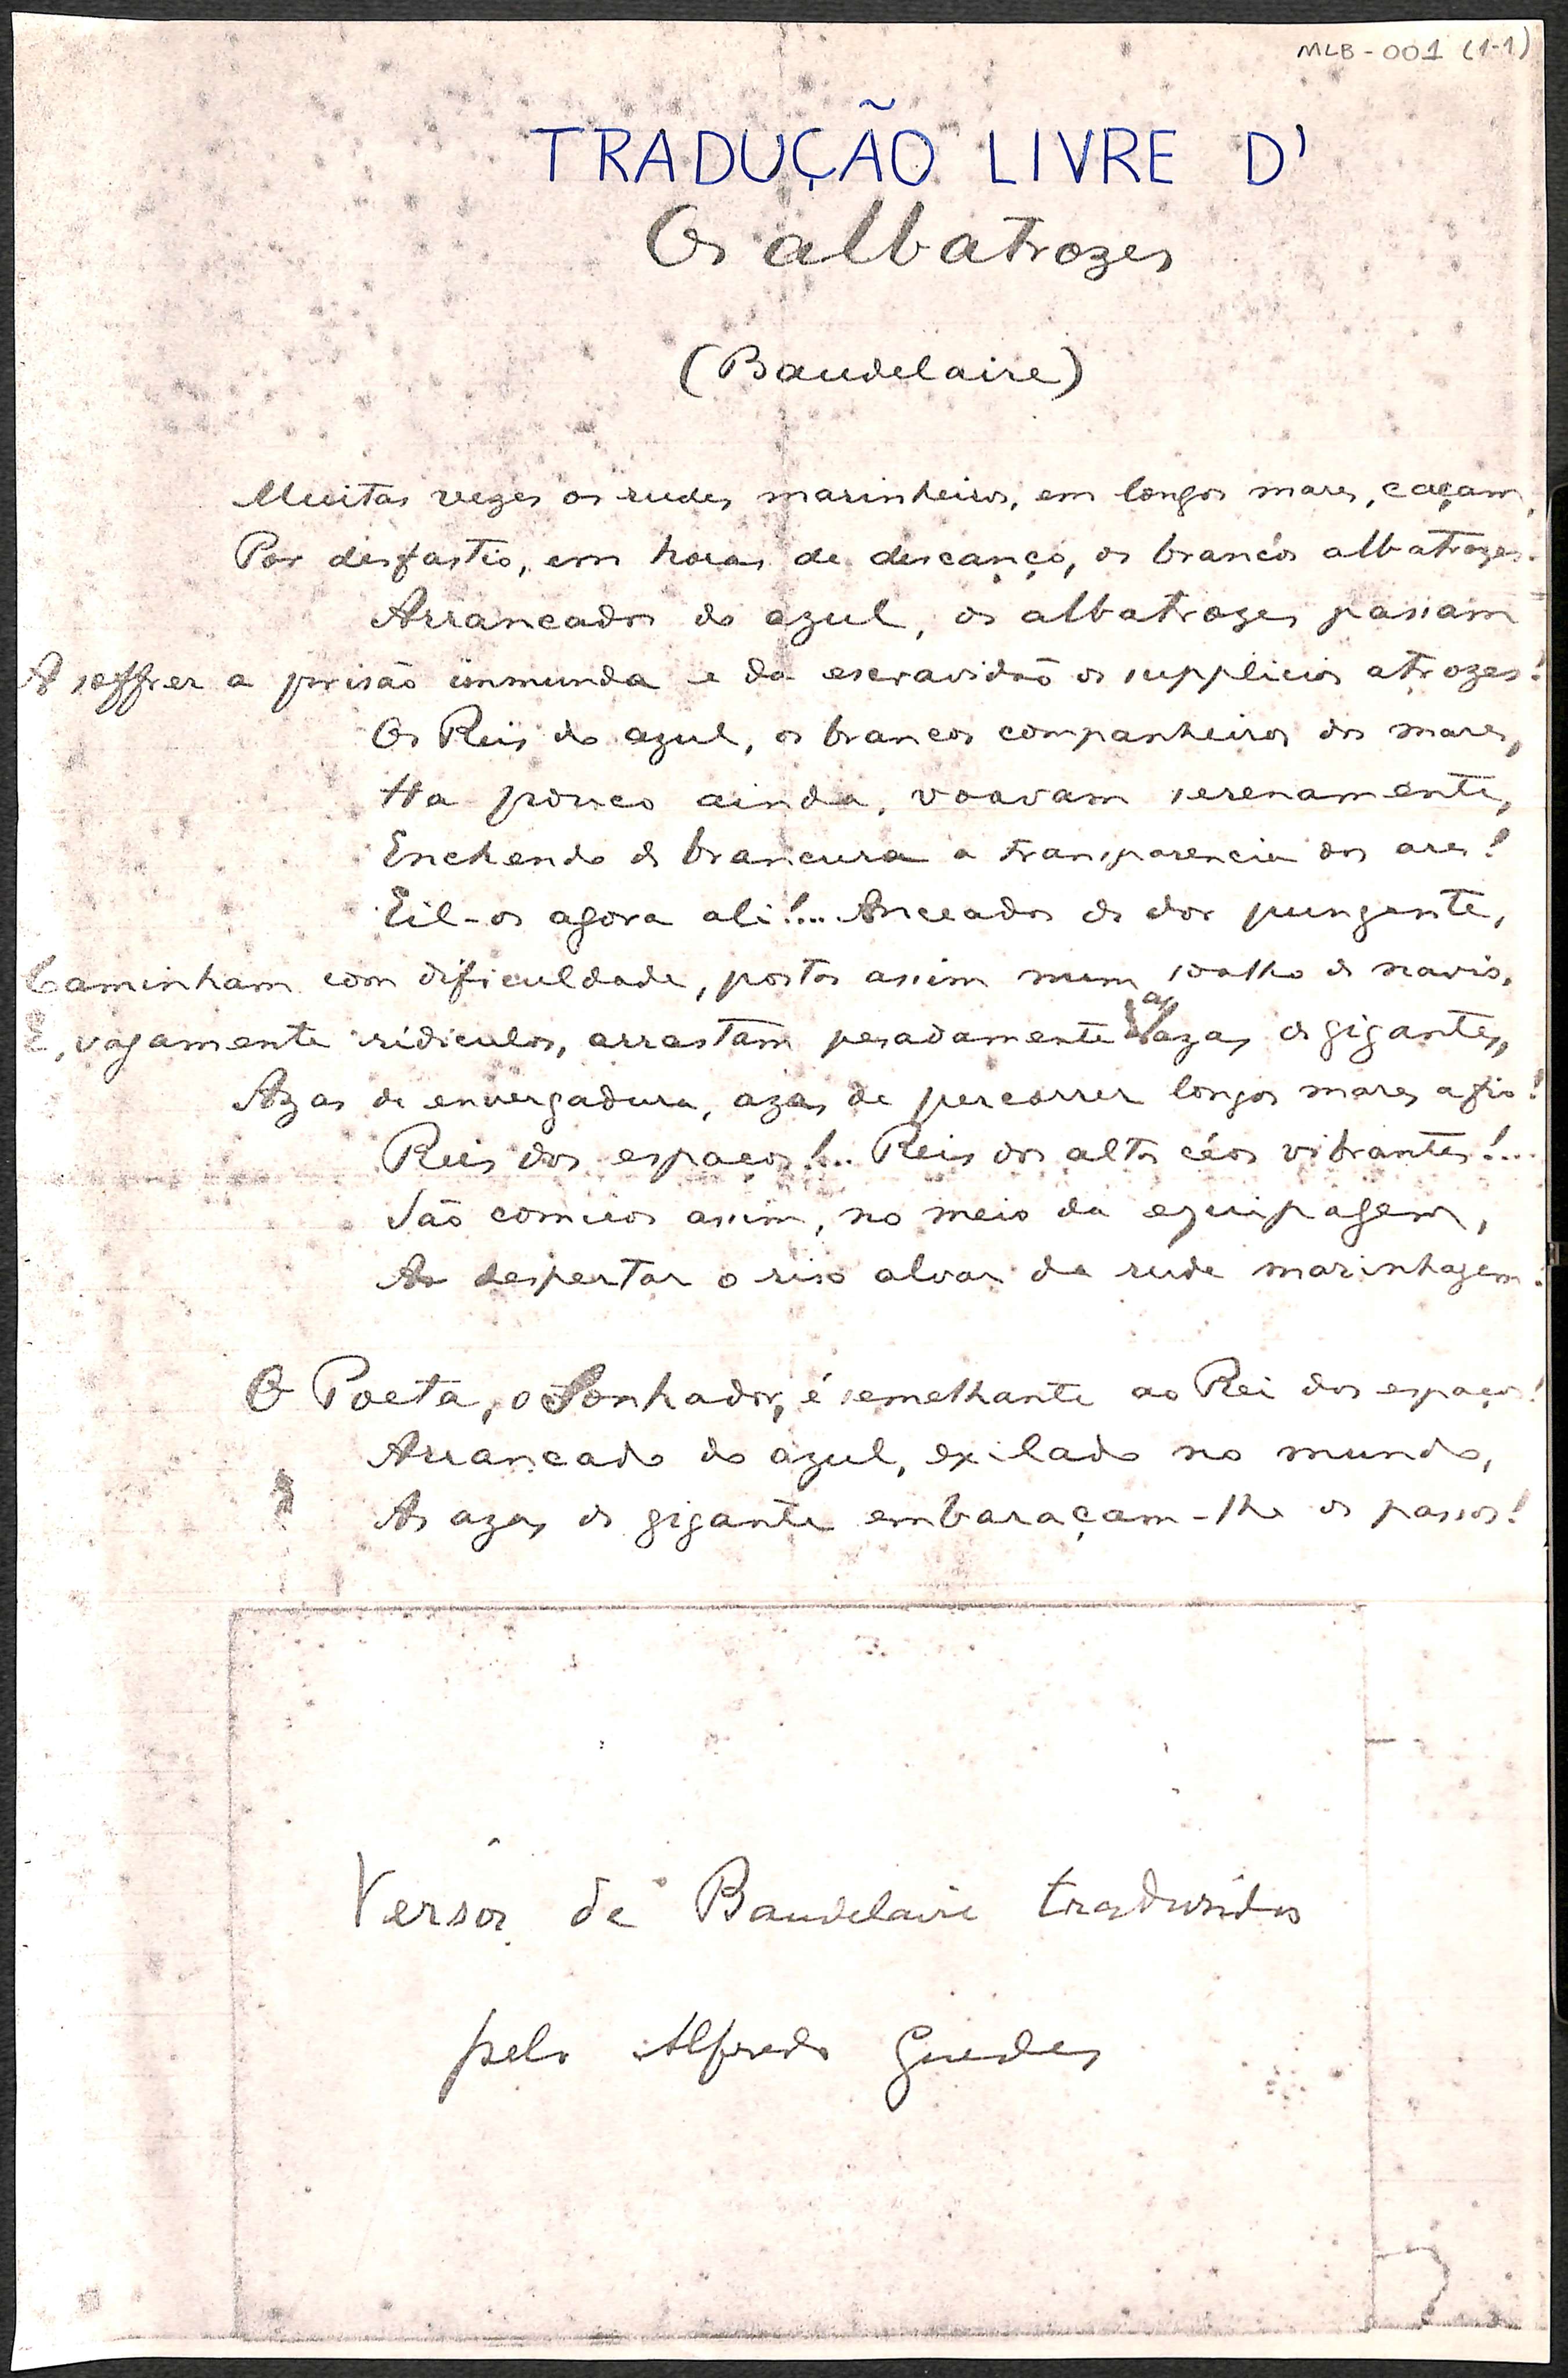 MLB-001 (1-1)
TRADUÇÃO LIVRE D'
Os albatrozes
(Baudelaire)
Muitas vezes os rudes marinheiros, em longos mares, caçam,
Por desfastio, em horas de descanço, os brancos albatrozes.
Arrancados do azul, os albatrozes passam
A soffrer a prisão immunda e da escravidão os supplicios atrozes!
Os Reis do azul, os brancos companheiros dos mares,
Ha pouco ainda, voavam serenamente,
Enchendo de brancura a transparencia dos ares!
Eil-os agora ali!... Anceados de dor pungente,
Caminham com dificuldade, postos assim num soalho de navio.
E, vagamente ridiculos, arrastam pesadamente as azas de gigantes,
Azas de envergadura, azas de percorrer longos mares a fio!
Reis dos espaços!.. Reis dos altos céos vibrantes!...
São comicos assim, no meio da equipagem,
Ao despertar o riso alvar da rude marinhagem!
O Poeta, o Sonhador, é semelhante ao Rei dos espaços!
Arrancado do azul, exilado no mundo,
As azas de gigante embaraçam-lhe os passos!
Versos de Baudelaire traduzidos
pelo Alfredo Guedes